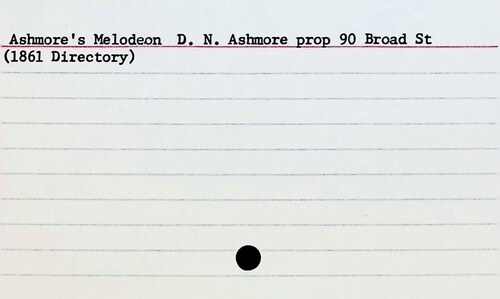 Ashmore's Melodeon D. N. Ashmore prop 90 Broad St
(1861 Directory)